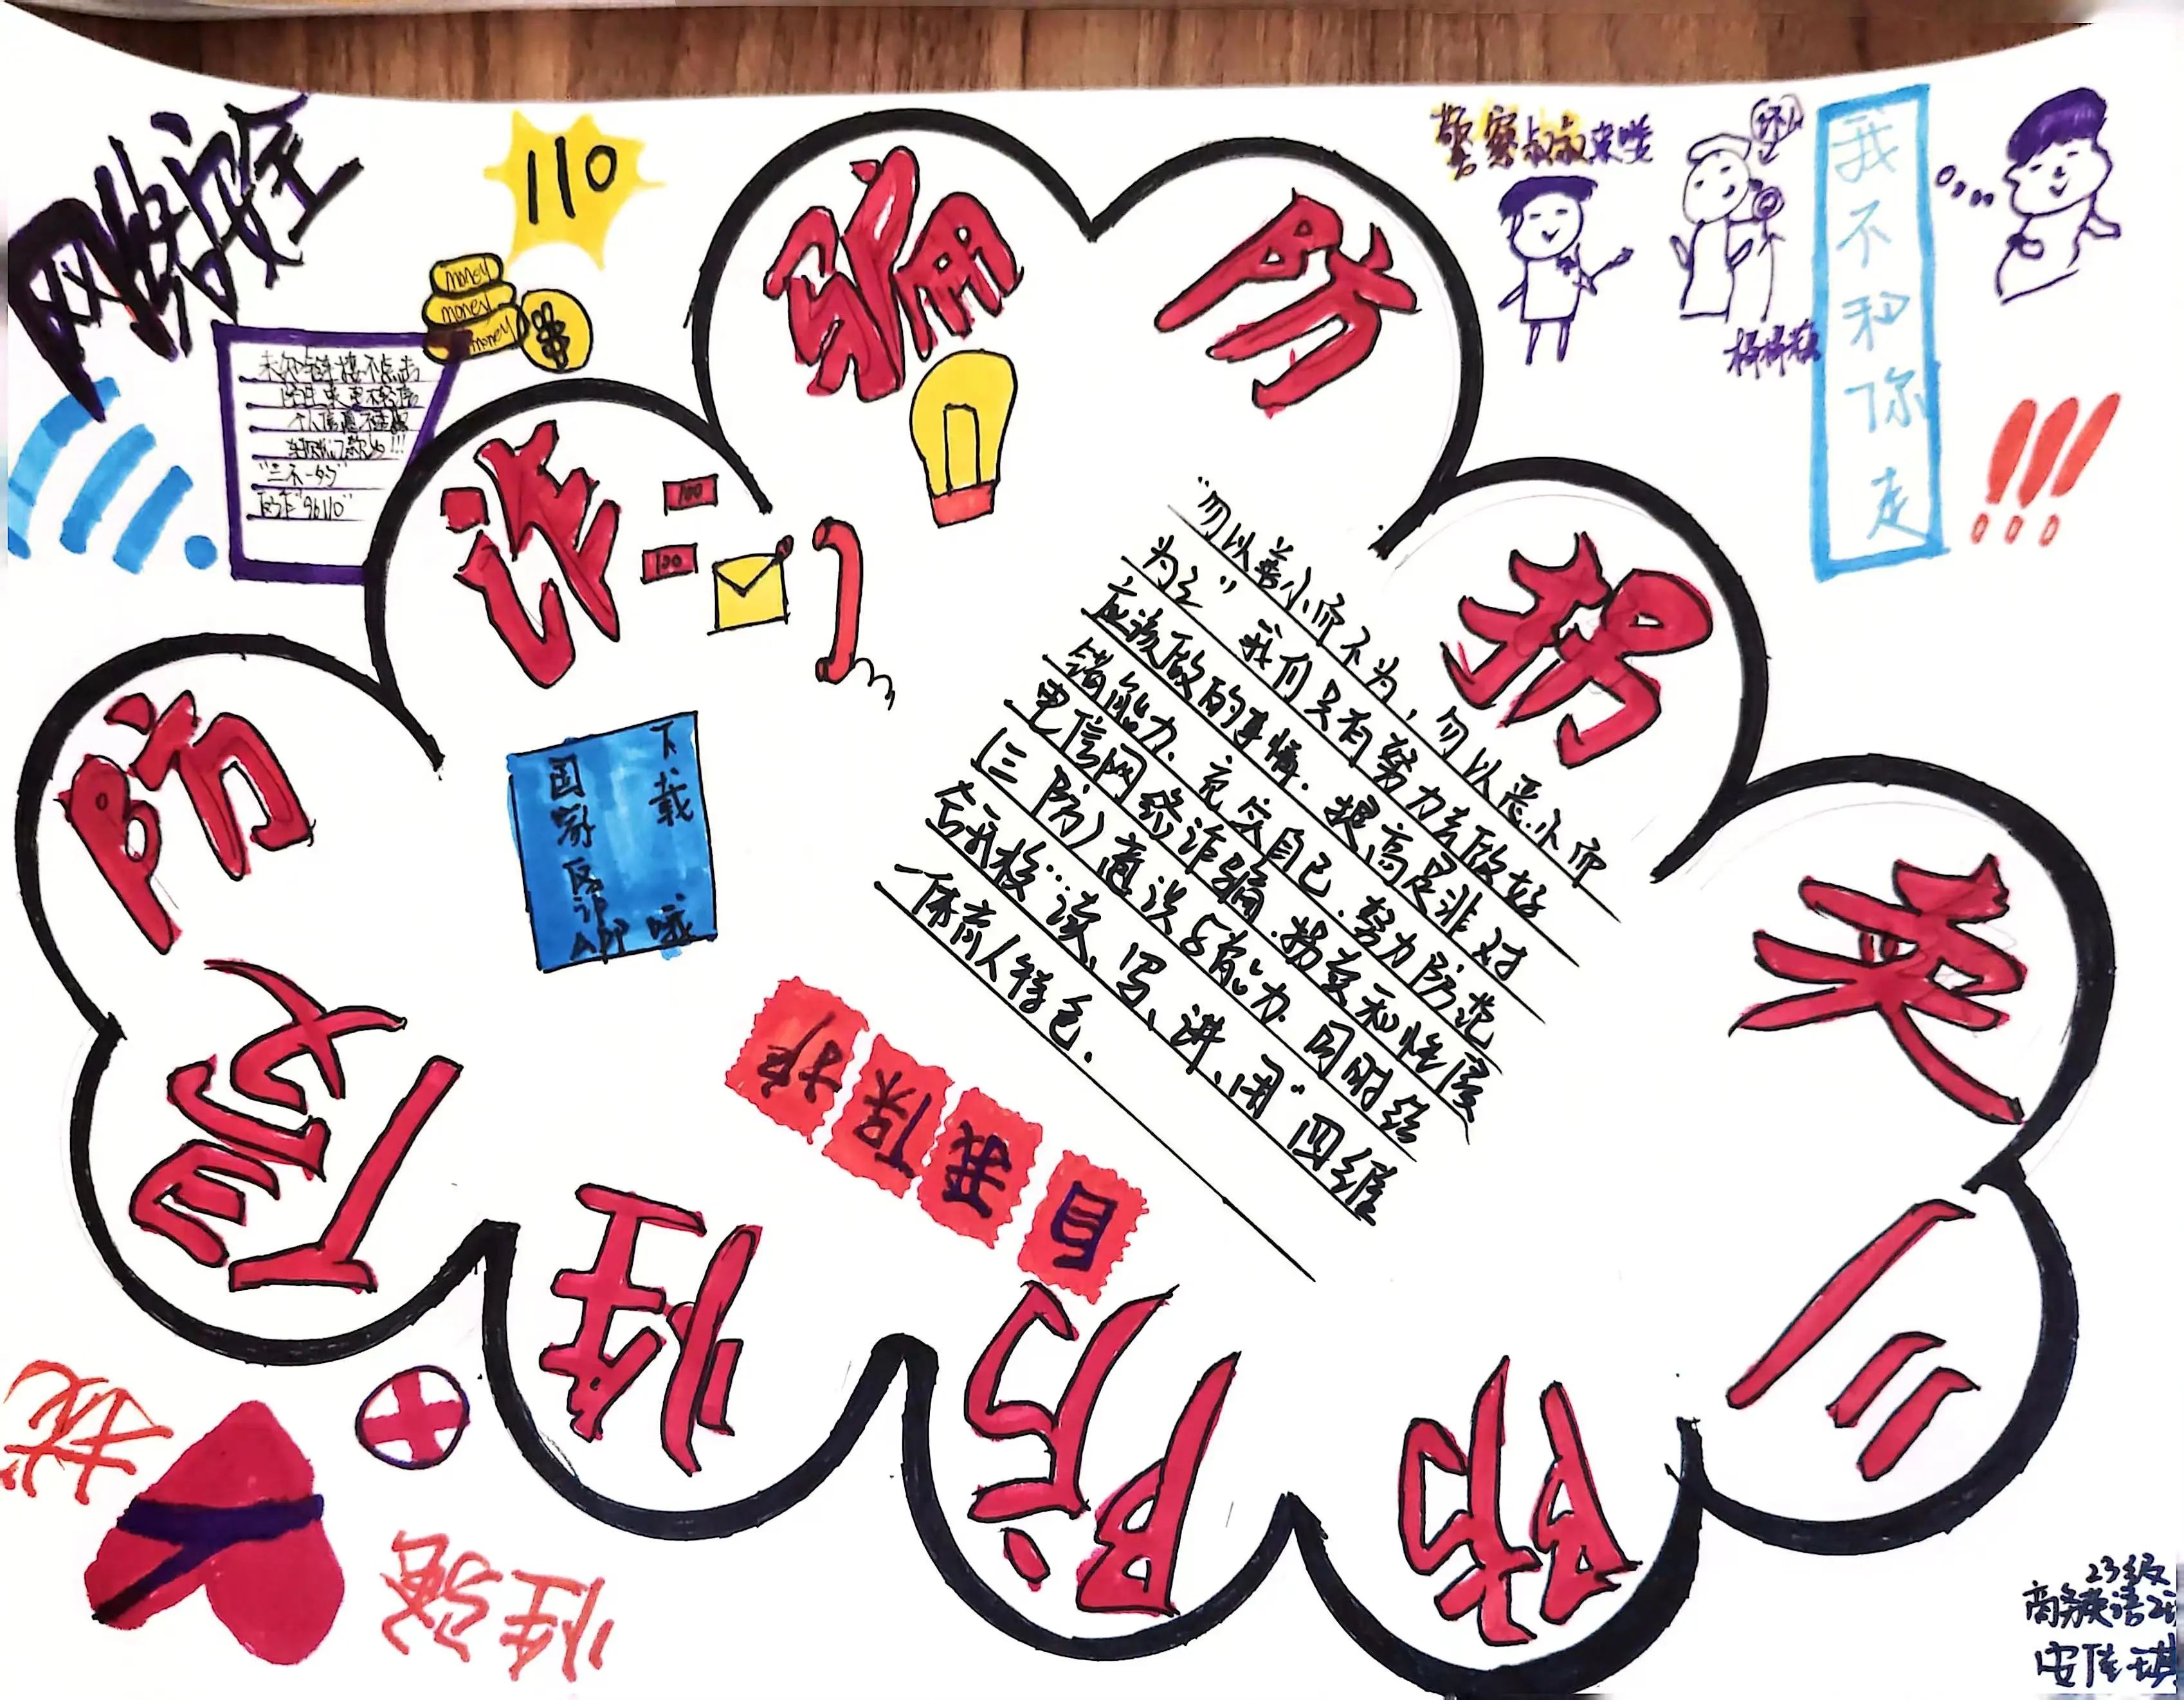 网络诈骗
110
money
money
money
$
未知链接不点击
陌生来电不轻信
个人信息不透露
转账汇款
"三不一多"
反诈"96110"
警察叔叔来喽
我不和你走
!!!
防诈骗
防拐卖
三防
防性侵
100
100
下载
国家反诈APP
哦
自我保护
"勿以善小而不为,勿以恶小而
为之"我们只有努力去做好
应该做的事情.提高是非对
错能力.充实自己.努力防范
电信网络诈骗.拐卖和性侵
(三防)意识与能力.同时结
合示校…读、写、讲、用"四维
一体育人特色.
拒绝
性侵
23级
商务英语2
安佳琪